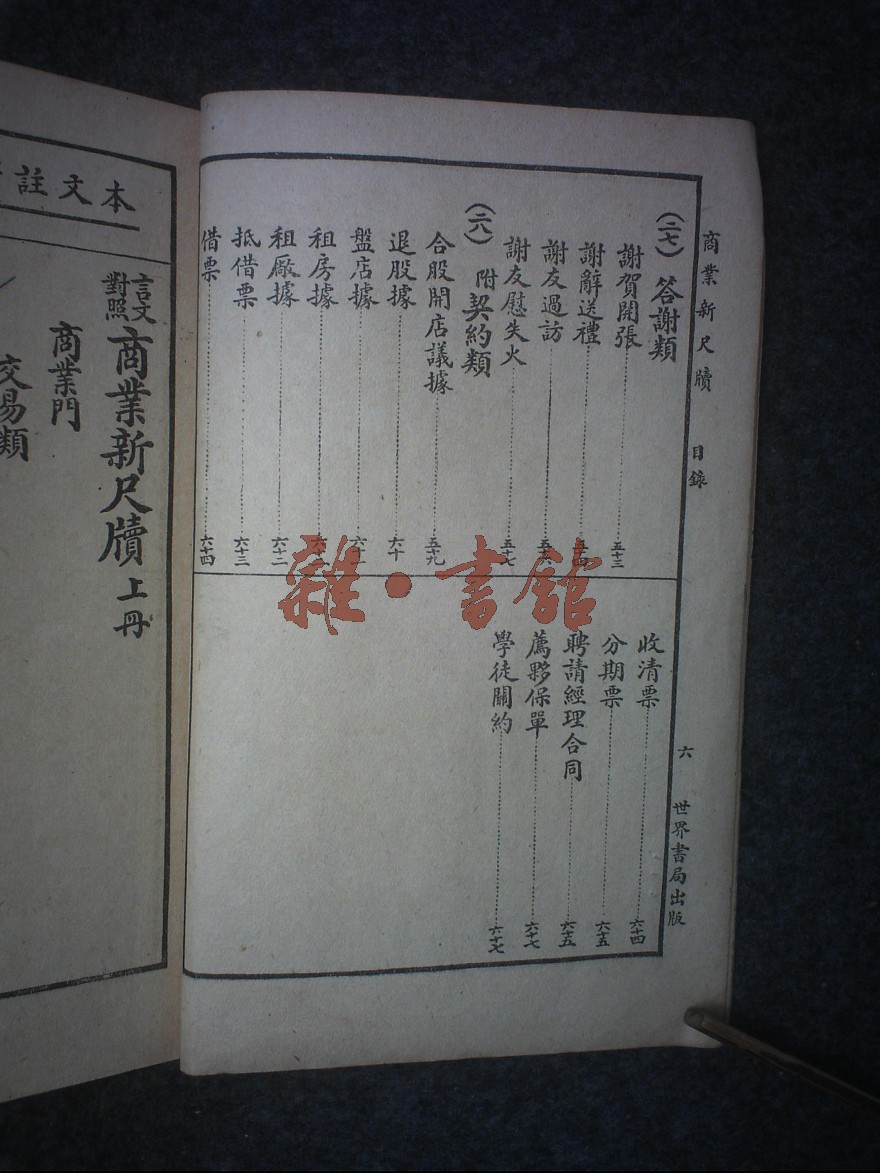 商業新尺牘 目錄 六 世界書局出版
(二七) 答謝類
謝賀開張 五十三
謝辭送禮
謝友過訪
謝友慰失火 五十七
(二八) 附契約類
合股開店議據 五十九
退股據 六十
盤店據
租房據
租厰據 六十二
抵借票 六十三
借票 六十四
收清票 六十四
分期票 六十五
聘請經理合同 六十五
薦夥保單 六十七
學徒關約 六十七
本文註
言文對照 商業新尺牘 上冊
商業門
交易類
雜·書館